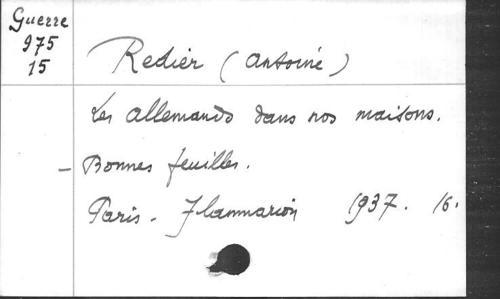 Guerre
975
15
Redier (Antoine)
Les allemands dans nos maisons.
- Bonnes feuilles.
Paris - Flammarion 1937. 16.